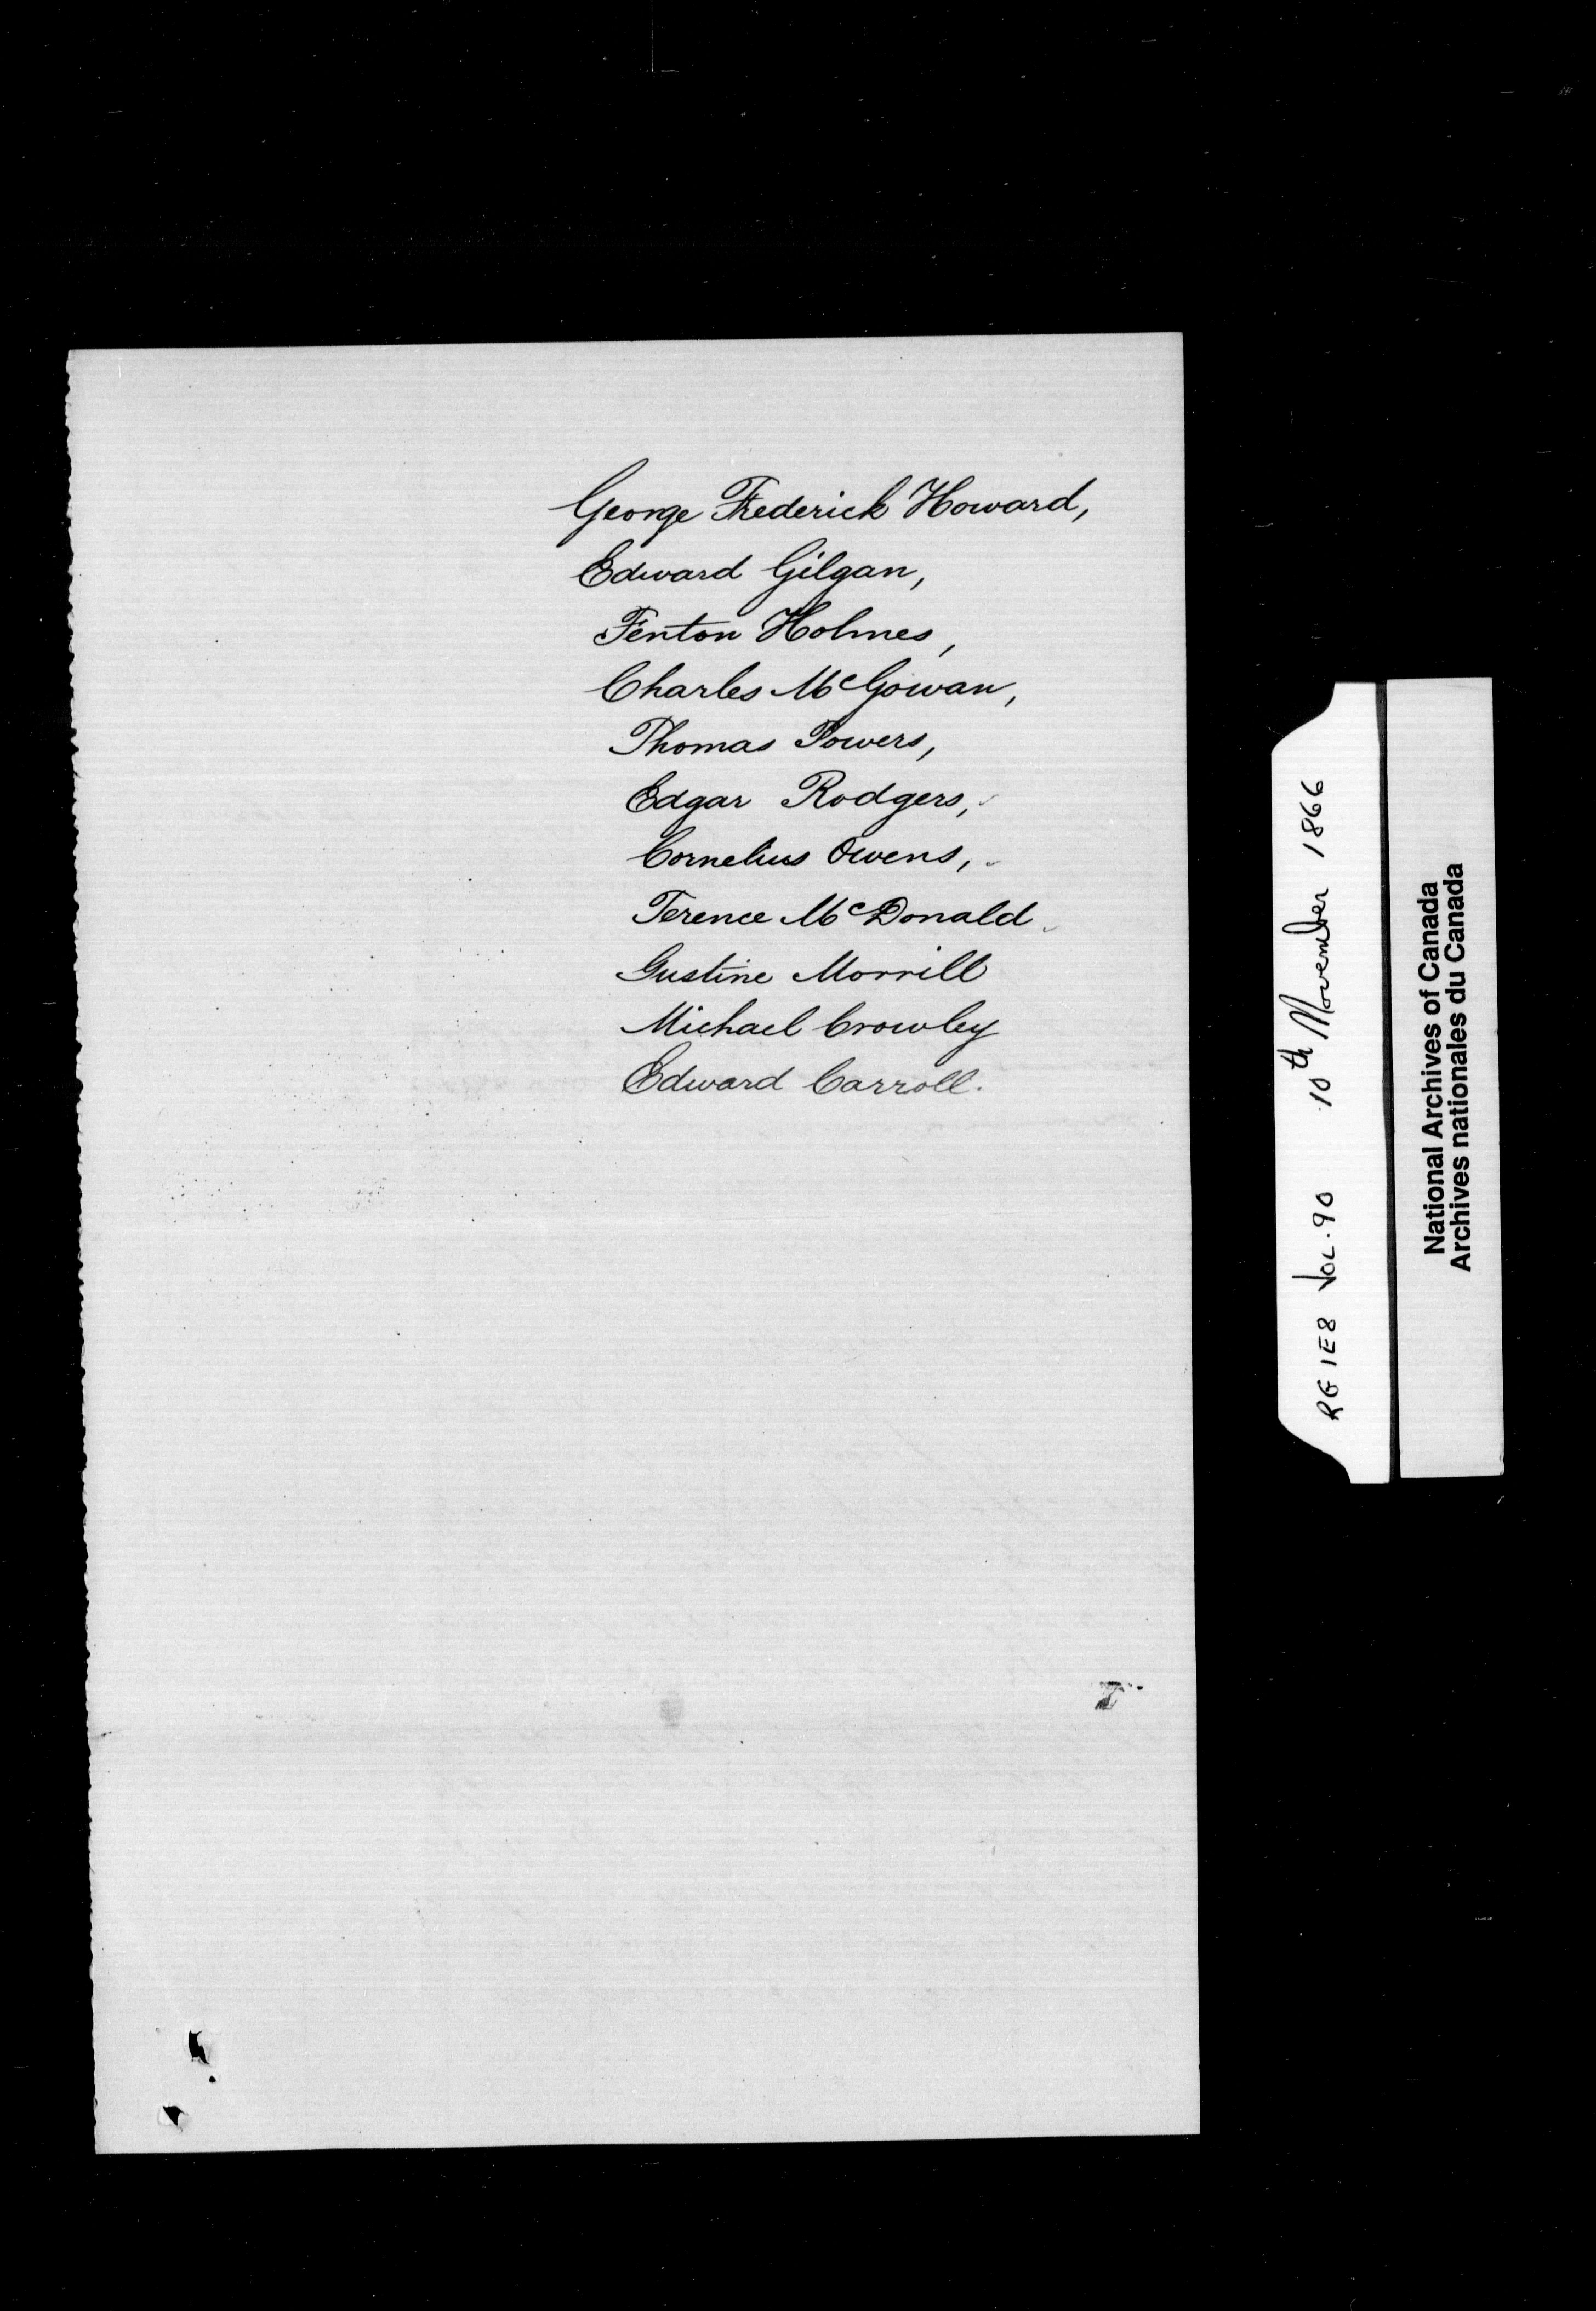 George Frederick Howard,
Edward Gilgan,
Fenton Holmes,
Charles McGowan,
Thomas Powers,
Edgar Rodgers,
Cornelius Owens,
Terence McDonald
Gustine Morrill
Michael Crowley
Edward Carroll.
RG 1E8 VOL. 90 10th November 1866
National Archives of Canada
Archives nationales du Canada